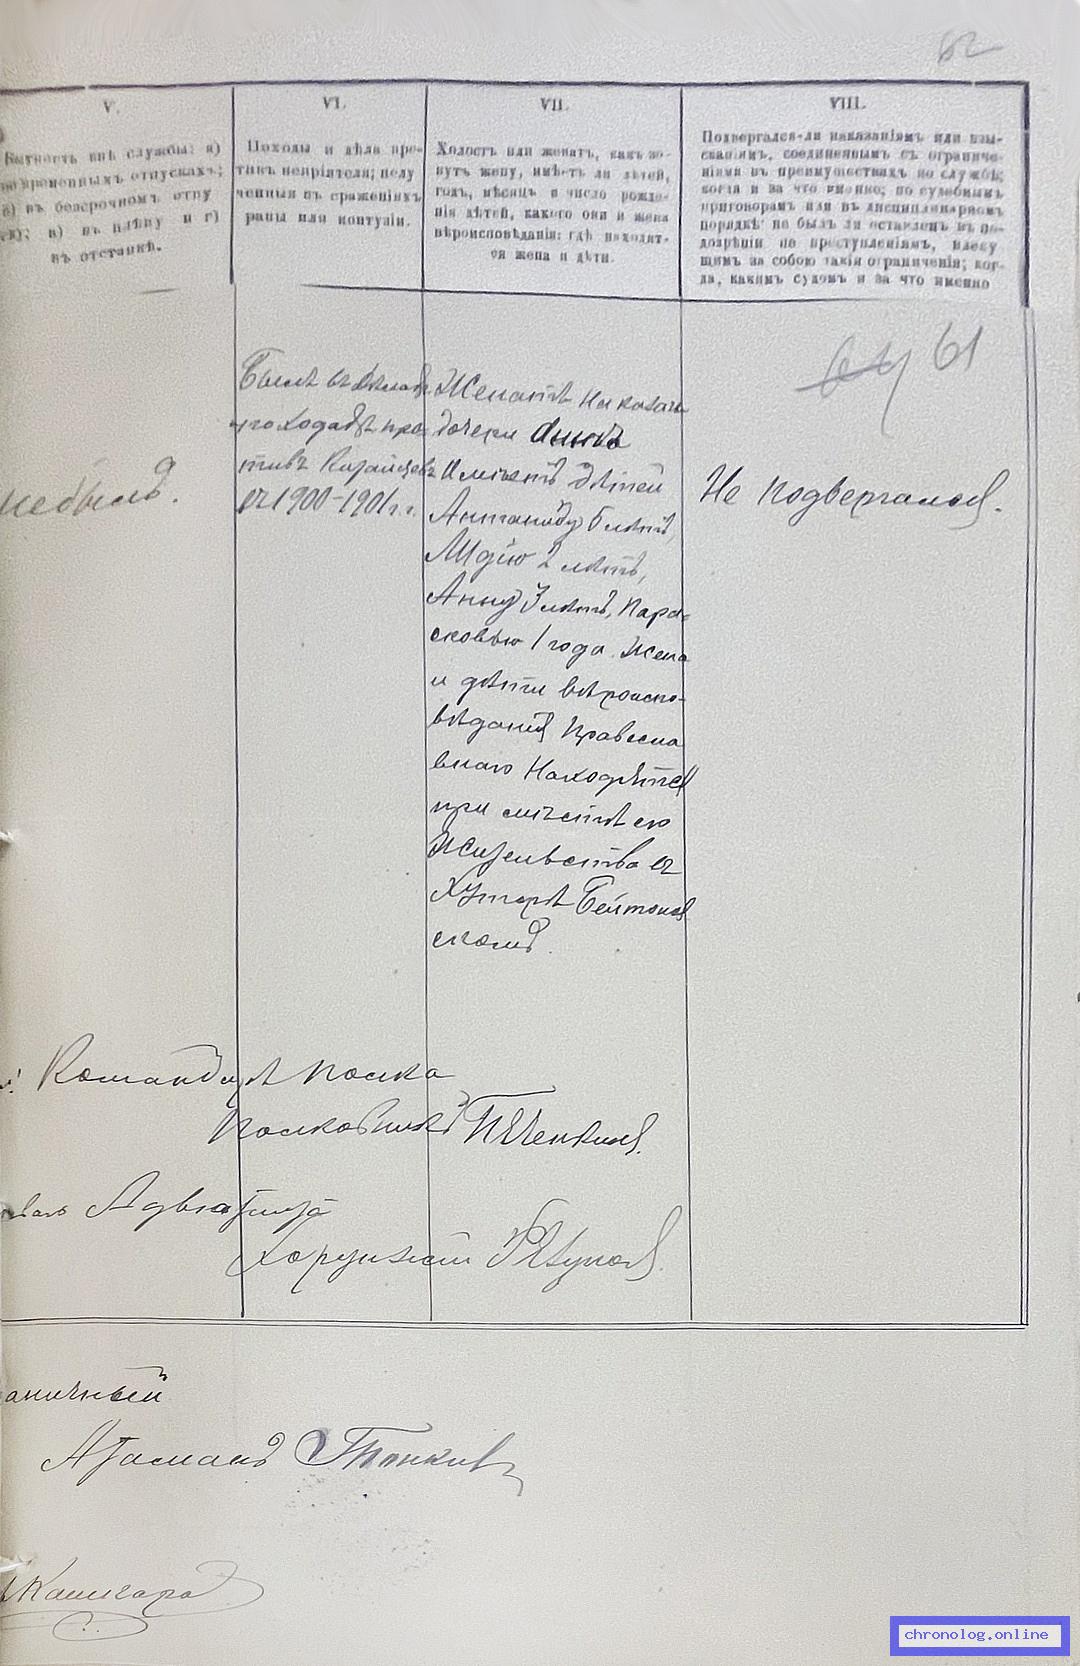 62
V.
Бытность внѣ службы: а)
во временныхъ отпускахъ;
б) въ безсрочномъ отпу
в) въ плѣну и г)
въ отставкѣ.
VI.
Походы и дѣла про-
тивъ непріятеля; полу
ченныя въ сраженіяхъ
раны или контузіи.
VII.
Холостъ или женатъ, какъ зо-
вутъ жену, имѣетъ ли дѣтей,
годъ, мѣсяцъ и число рожде-
нія дѣтей, какого они и жена
вѣроисповѣданія: гдѣ находят-
ся жена и дѣти.
VIII.
Подвергался-ли наказаніямъ или взы-
сканіямъ, соединеннымъ съ ограниче-
ніями въ преимуществахъ по службѣ;
когда и за что именно; по судебнымъ
приговорамъ или въ дисциплинарномъ
порядкѣ: не былъ ли оставленъ въ по-
дозрѣніи по преступленіямъ, влеку
щимъ за собою такія ограниченія; ког-
да, какимъ судомъ и за что именно
64 61
не былъ.
Былъ въ
походахъ про-
тивъ Китайцевъ
въ 1900-1901 г.г.
Женатъ на казачь
дочери Аннѣ
Имѣетъ дѣтей
Антаниду 6 лѣтъ,
Лидію 2 лѣтъ,
Анну 3 лѣтъ, Пара-
сковью 1 года. Жена
и дѣти вѣроиспо-
вѣданія Православ
внаго Находятся
при мѣстѣ его
Жительства въ
Хуторѣ Бейтонов
скомъ.
Не подвергался.
Командиръ полка
Полковникъ Печенкинъ.
Адъютантъ
Хорунжій
аничный
Атаманъ
chronolog.online